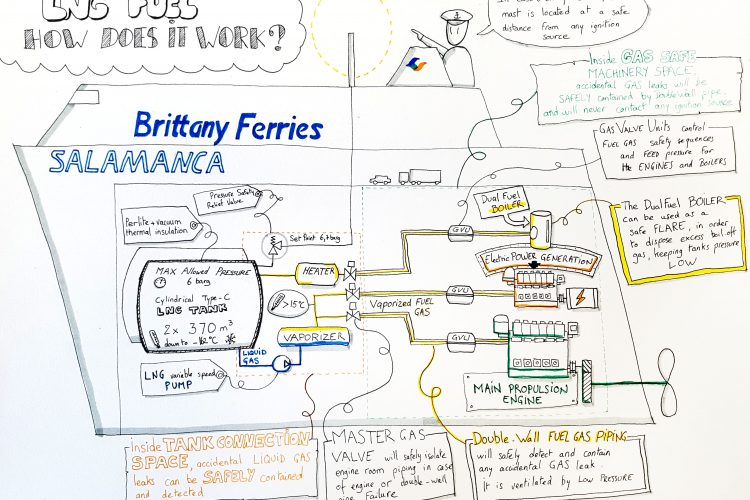 LNG FUEL
HOW DOES IT WORK?
mast is located at a safe
distance from any ignition
source
Inside GAS SAFE
MACHINERY SPACE,
accidental GAS leaks will be
SAFELY contained by Double Wall pipe,
and will never contact any ignition source
Brittany Ferries
SALAMANCA
GAS VALVE UNITS control
FUEL GAS safety sequences
and FEED pressure for
the ENGINES and BOILERS
Pressure Safety
Relief Valve
Perlite + vacuum
thermal insulation
Set Point 6,7 barg
Dual Fuel
BOILER
GVU
The Dual Fuel BOILER
can be used as a
safe FLARE, in order
to dispose excess boil-off
gas, keeping tanks pressure
LOW
Electric POWER GENERATION
MAX Allowed PRESSURE
6 barg
Cylindrical Type-C
LNG TANK
2x 370 m³
down to -162°C
HEATER
>15°C
Vaporized FUEL
GAS
GVU
VAPORIZER
LIQUID
GAS
GVU
LNG variable speed
PUMP
MAIN PROPULSION
ENGINE
Inside TANK CONNECTION
SPACE, accidental LIQUID GAS
leaks can be SAFELY contained
and detected
MASTER GAS
VALVE will safely isolate
engine room piping in case
of engine or double-wall
pipe failure
Double-Wall FUEL GAS PIPING
will safely detect and contain
any accidental GAS leak.
It is ventilated by Low PRESSURE